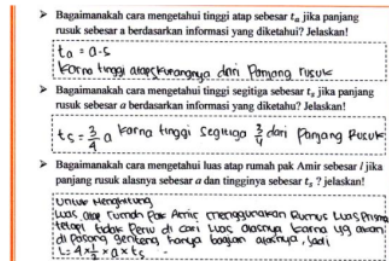 ➤ Bagaimanakah cara mengetahui tinggi atap sebesar tₐ jika panjang
rusuk sebesar a berdasarkan informasi yang diketahui? Jelaskan!
tₐ = a-5
karna tinggi atap kurangnya dari Panjang rusuk
➤ Bagaimanakah cara mengetahui tinggi segitiga sebesar tₛ jika panjang
rusuk sebesar a berdasarkan informasi yang diketahu? Jelaskan!
tₛ = 3/4 a karna tinggi segitiga 3/4 dari Panjang Rusuk
➤ Bagaimanakah cara mengetahui luas atap rumah pak Amir sebesar l jika
panjang rusuk alasnya sebesar a dan tingginya sebesar tₛ ? jelaskan!
Untuk Menghitung
Luas atap rumah Pak Amir menggunakan Rumus Luas Prisma
tetapi tidak Perlu di cari Luas alasnya karna yg akan
di pasang genteng hanya bagian atasnya, Jadi
L = 4 x 1/2 x a x tₛ